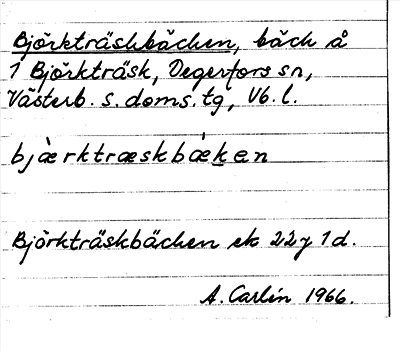 Björkträskbäcken, bäck å
1 Björkträsk, Degerfors sn,
Västerb. s. doms. tg, Vb. l.
bjæ̀rktræskbǽken
Björkträskbäcken ek 22y 1d.
A. Carlin 1966.